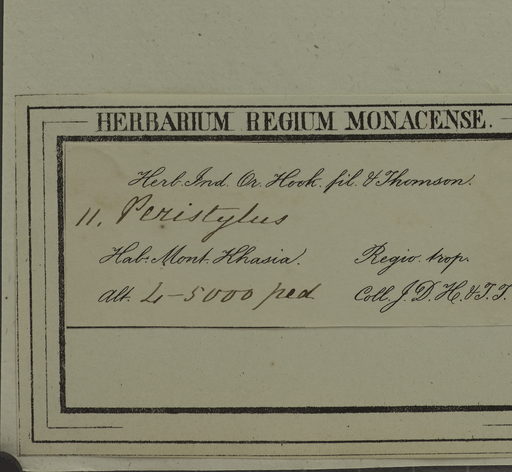 HERBARIUM REGIUM MONACENSE.
Herb. Ind. Or. Hook. fil. & Thomson.
11. Peristylus
Hab. Mont. Khasia. Regio trop.
Alt. 4-5000 ped Coll. J. D. H. & T. T.